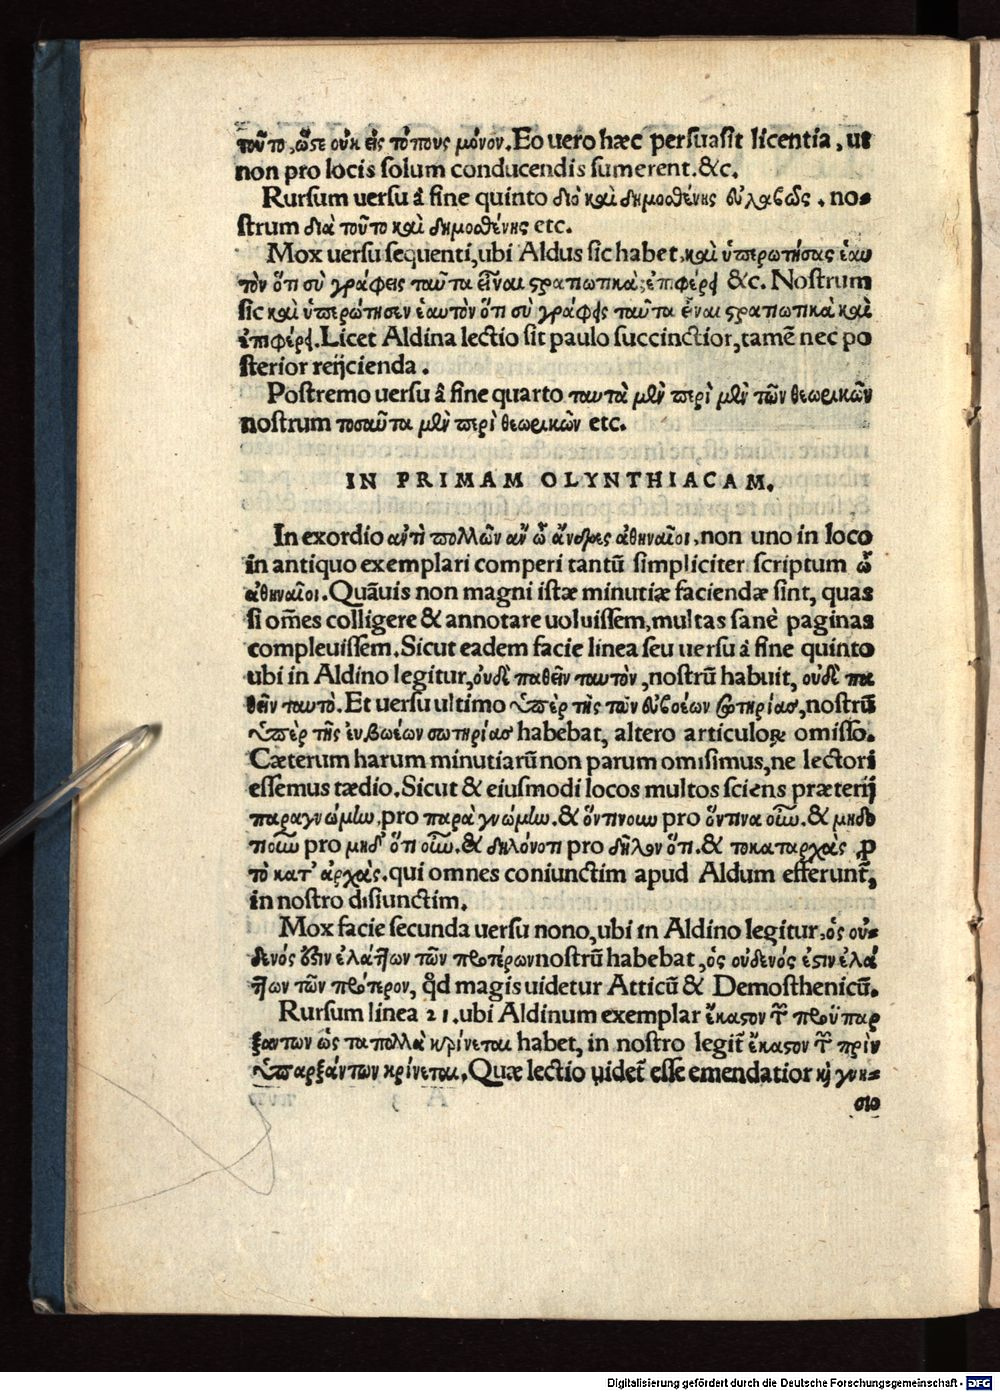 τοῦτο, ὥστε οὐκ εἰς τόπους μόνον. Eo uero hæc persuasit licentia, ut
non pro locis solum conducendis sumerent. &c.
Rursum uersu â fine quinto διὸ καὶ δημοσθένης εὐλαβῶς. no-
strum διὰ τοῦτο καὶ δημοσθένης etc.
Mox uersu sequenti, ubi Aldus sic habet, καὶ ὑπερωτήσας ἑαυ
τὸν ὅτι σὺ γράφεις ταῦτα εἶναι στρατιωτικά; ἐπιφέρει &c. Nostrum
sic καὶ ὑπερώτησεν ἑαυτὸν ὅτι σὺ γράφεις ταῦτα εἶναι στρατιωτικὰ καὶ
ἐπιφέρει. Licet Aldina lectio sit paulo succinctior, tamē nec po
sterior reijcienda.
Postremo uersu â fine quarto ταυτὰ μὲν περὶ μὲν τῶν θεωρικῶν
nostrum τοσαῦτα μὲν περὶ θεωρικῶν etc.
IN PRIMAM OLYNTHIACAM.
In exordio αντὶ πολλῶν αν ὦ ἄνδρες ἀθηναῖοι, non uno in loco
in antiquo exemplari comperi tantū simpliciter scriptum ὦ
ἀθηναῖοι. Quāuis non magni istæ minutiæ faciendæ sint, quas
si om̄es colligere & annotare uoluissem, multas sanè paginas
compleuissem. Sicut eadem facie linea seu uersu â fine quinto
ubi in Aldino legitur, οὐδὲ παθεῖν ταυτὸν, nostrū habuit, οὐδὲ πα
θεῖν ταυτὸ. Et uersu ultimo ὑπὲρ τῆς τῶν εὐβοέων σωτηρίας, nostrū
ὑπὲρ τῆς εὐβωέων σωτηρίας habebat, altero articuloꝝ omisso.
Cæterum harum minutiarū non parum omisimus, ne lectori
essemus tædio. Sicut & eiusmodi locos multos sciens præterij
παραγνώμην, pro παρὰ γνώμην. & ὅντινοιων pro ὅντινα οὖν. & μηδο
τιοῦν pro μηδ' ὅτι οὖν. & δηλόνοτι pro δῆλον ὅτι. & τοκαταρχὰς ꝓ
τὸ κατ' ἀρχὰς. qui omnes coniunctim apud Aldum efferunt̄,
in nostro disiunctim.
Mox facie secunda uersu nono, ubi in Aldino legitur, ὁς οὐ-
δενός ἐστιν ἐλάττων τῶν προτέρων nostrū habebat, ὁς οὐδενός ἐστιν ἐλά
ττων τῶν πρότερον, qđ magis uidetur Atticū & Demosthenicū.
Rursum linea 21. ubi Aldinum exemplar ἕκαστον τῶν προϋπαρ
ξάντων ὡς τα πολλὰ κρίνεται habet, in nostro legit̄ ἕκαστον τῶν πρὶν
ὑπαρξάντων κρίνεται. Quæ lectio uidet̄ esse emendatior καὶ γνη-
σιο
Digitalisierung gefördert durch die Deutsche Forschungsgemeinschaft - DFG